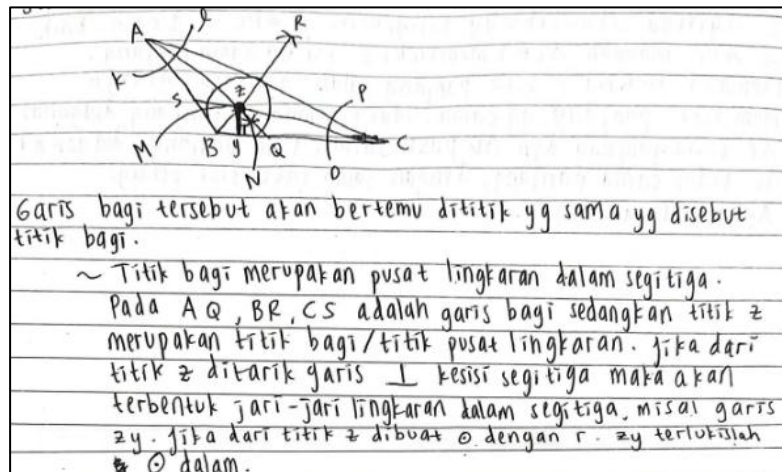 A
l
R
K
z
P
S
M
B
y
Q
C
N
O
Garis bagi tersebut akan bertemu dititik yg sama yg disebut
titik bagi.
~ Titik bagi merupakan pusat lingkaran dalam segitiga.
Pada AQ, BR, CS adalah garis bagi sedangkan titik z
merupakan titik bagi/titik pusat lingkaran. jika dari
titik z ditarik garis ⊥ kesisi segitiga maka akan
terbentuk jari-jari lingkaran dalam segitiga, misal garis
zy. jika dari titik z dibuat ⊙ dengan r. zy terlukislah
⊙ dalam.